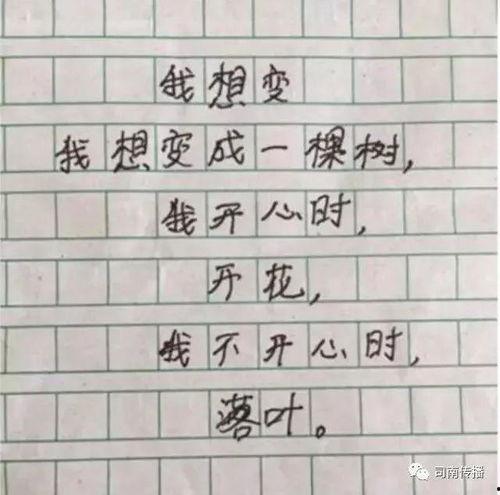 我想变
我想变成一棵树,
我开心时,
开花,
我不开心时,
落叶。
司南传播